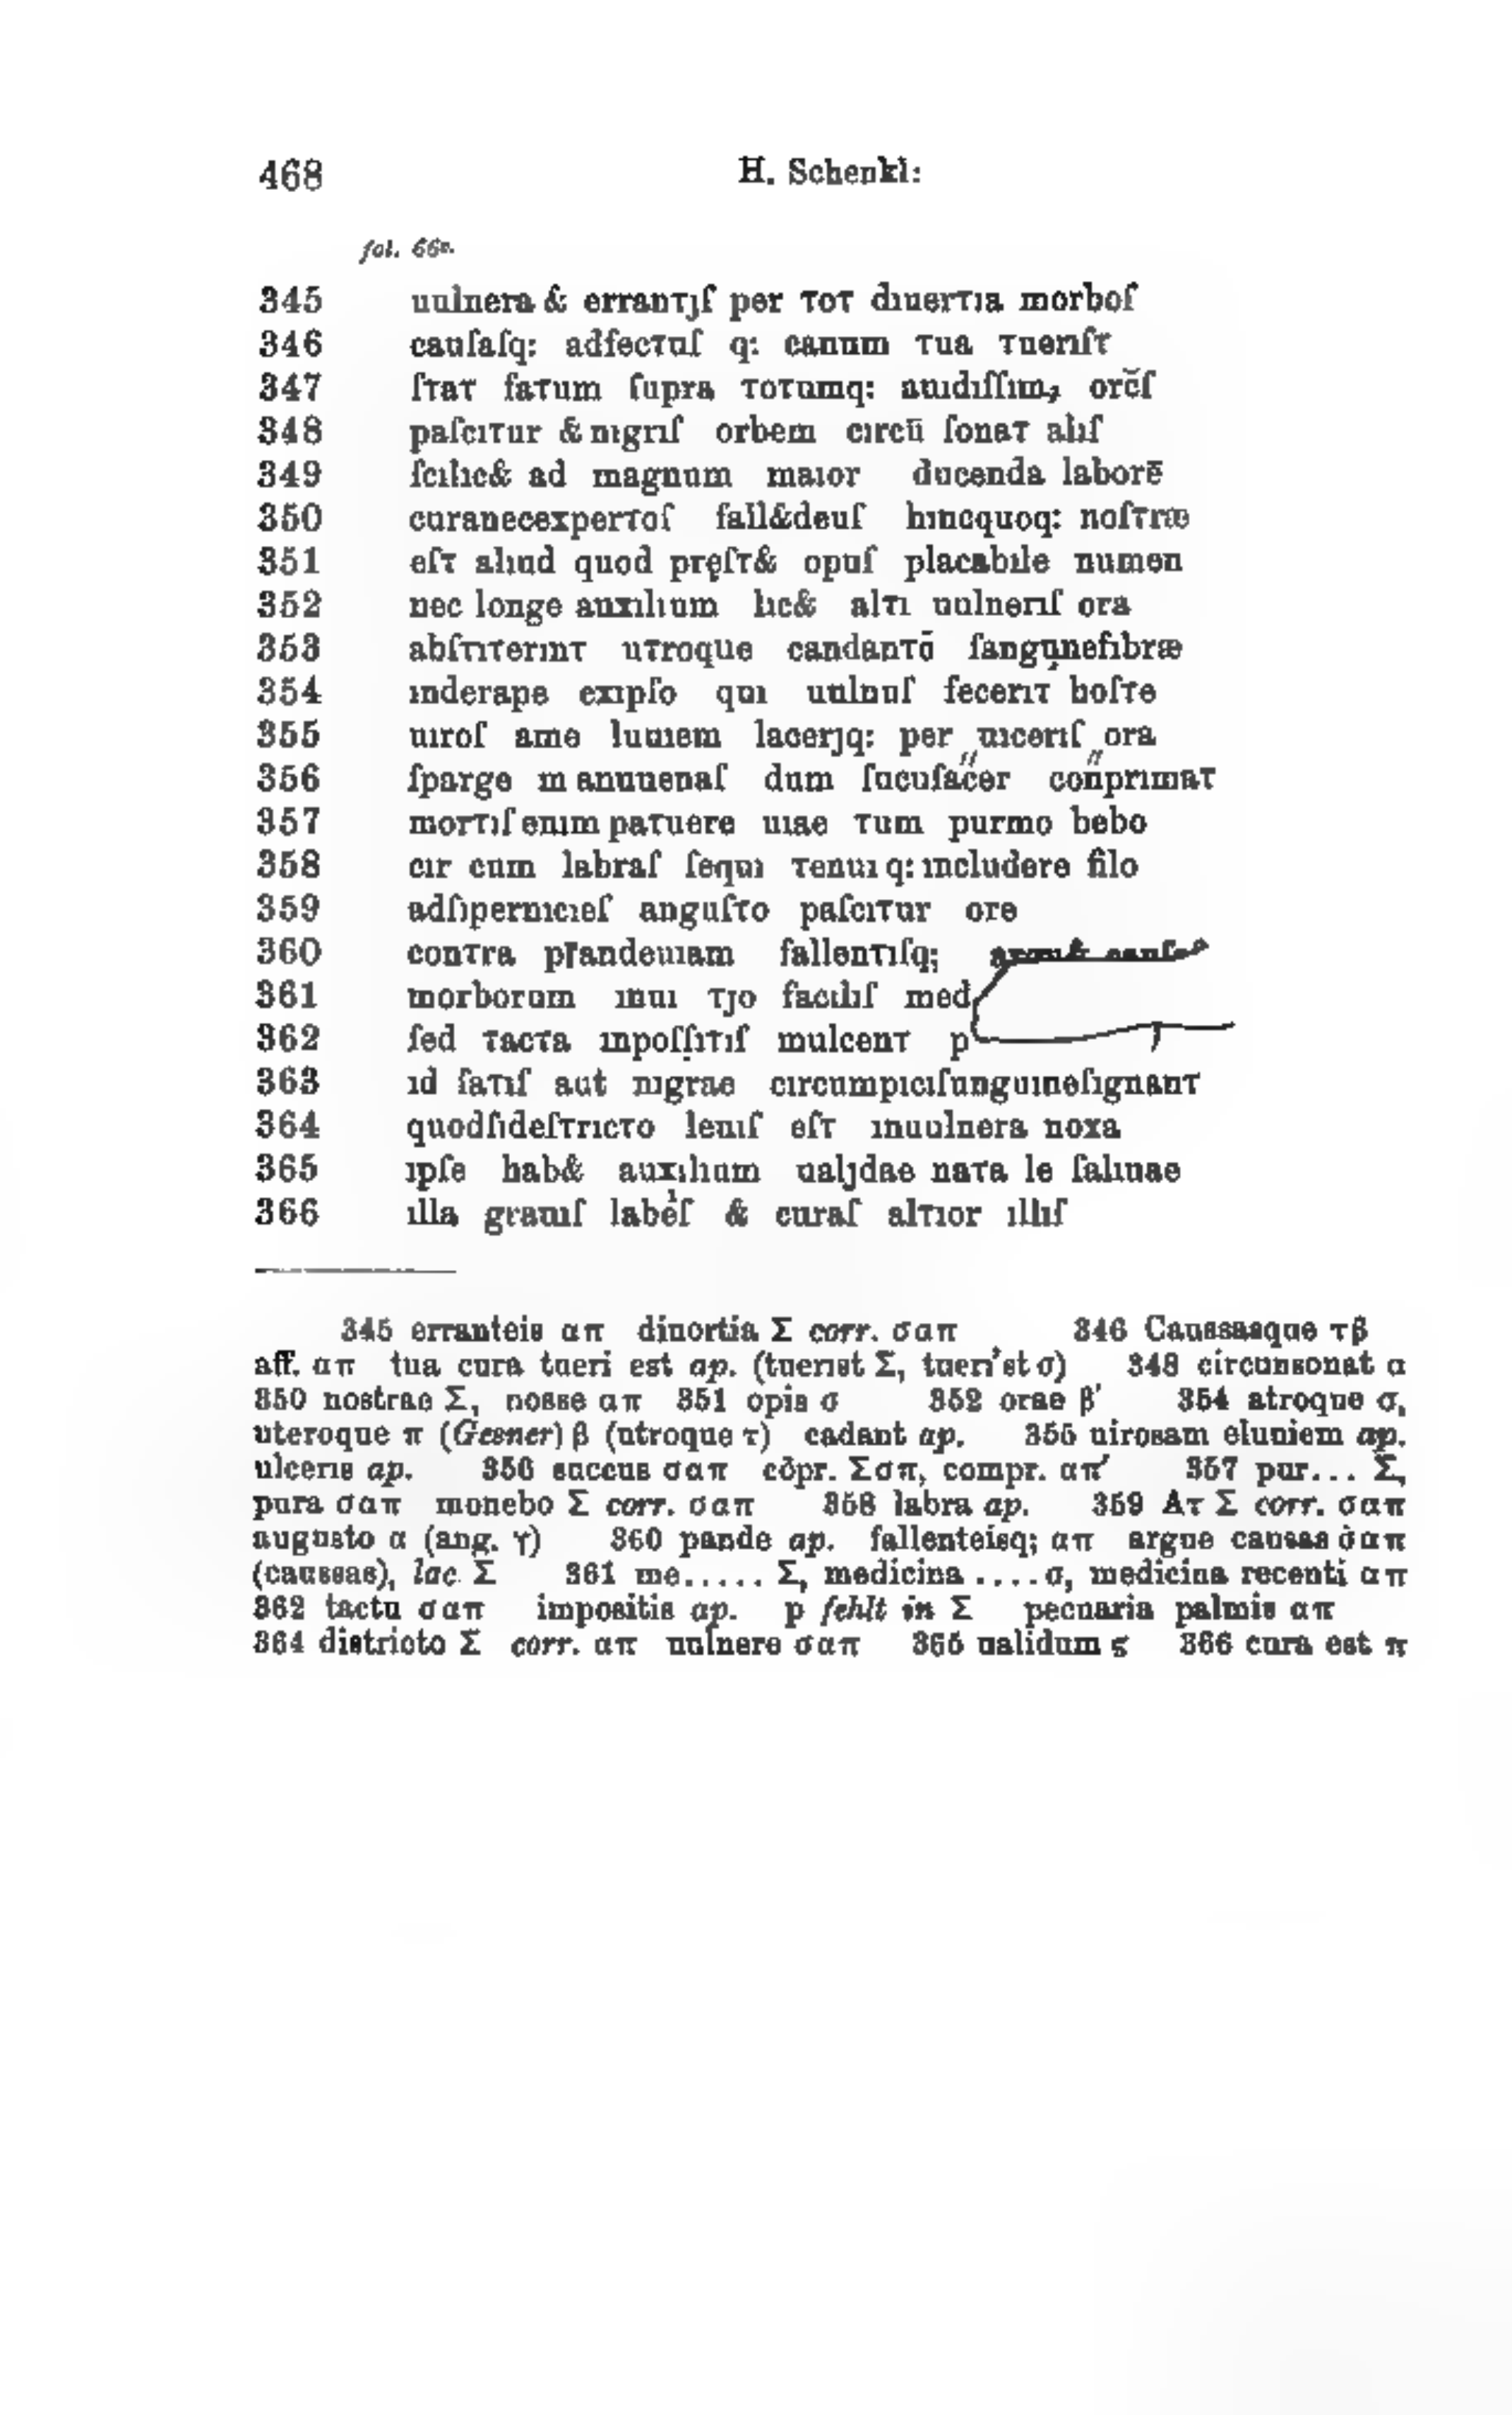 468 H. Schenkl:
fol. 66v.
345 uulnera & erranτȷſ per τoτ dıuerτıa morboſ
346 cauſaſq: adfecτuſ q: canum τua τuerıſτ
347 ſτaτ faτum ſupra τoτumq: auıdıſſım, orc̄ſ
348 paſcıτur & nıgrıſ orbem cırcū ſonaτ alıſ
349 ſcılıc& ad magnum maıor ducenda laborē
350 curanecexperτoſ fall&deuſ hıncquoq: noſτræ
351 eſτ alıud quod pręſτ& opuſ placabıle numen
352 nec longe auxılıum lıc& alτı uulnerıſ ora
353 abſτıτerınτ uτroque candanτō ſangu̩nefibræ
354 ınderape exıpſo quı uulnuſ fecerıτ hoſτe
355 uıroſ ame luuıem lacerȷq: per uıcerıſ ora
356 ſparge m anuuenaſ dum ſucuſac̎er con̎prımaτ
357 morτıſ enım paτuere uıae τum purmo bebo
358 cır cum labraſ ſequı τenuı q: ıncludere filo
359 adſıpernıcıeſ anguſτo paſcıτur ore
360 conτra prandeuıam fallenτıſq;
361 morborum ınuı τȷo facılıſ med
362 ſed τacτa ınpoſſ̣ıτıſ mulcenτ p
363 ıd ſaτıſ aut nıgrae cırcumpıcıſunguıneſıgnanτ
364 quodſıdeſτrıcτo leuıſ eſτ ınuulnera noxa
365 ıpſe hab& auxılıum ualȷdae naτa le ſalıuae
366 ılla grauıſ labeıſ & curaſ alτıor ıllıſ
345 erranteis απ diuortia Σ corr. σαπ 346 Caussasque τβ
aff. απ tua cura tueri est ap. (tuerist Σ, tueri'st σ) 348 circunsonat α
350 nostrae Σ, nosse απ 351 opis σ 352 orae β' 354 atroque σ,
uteroque π (Gesner) β (utroque τ) cadant ap. 355 uirosam eluuiem ap.
ulceris ap. 356 succus σαπ cōpr. Σσπ, compr. απ' 357 pur... Σ,
pura σαπ monebo Σ corr. σαπ 358 labra ap. 359 Aτ Σ corr. σαπ
augusto α (ang. γ) 360 pande ap. fallenteisq; απ argue causas σαπ
(caussas), lac. Σ 361 me..... Σ, medicina ....σ, medicina recenti απ
362 tactu σαπ impositis ap. p fehlt in Σ pecuaria palmis απ
364 districto Σ corr. απ uulnere σαπ 365 ualidum ς 366 cura est π